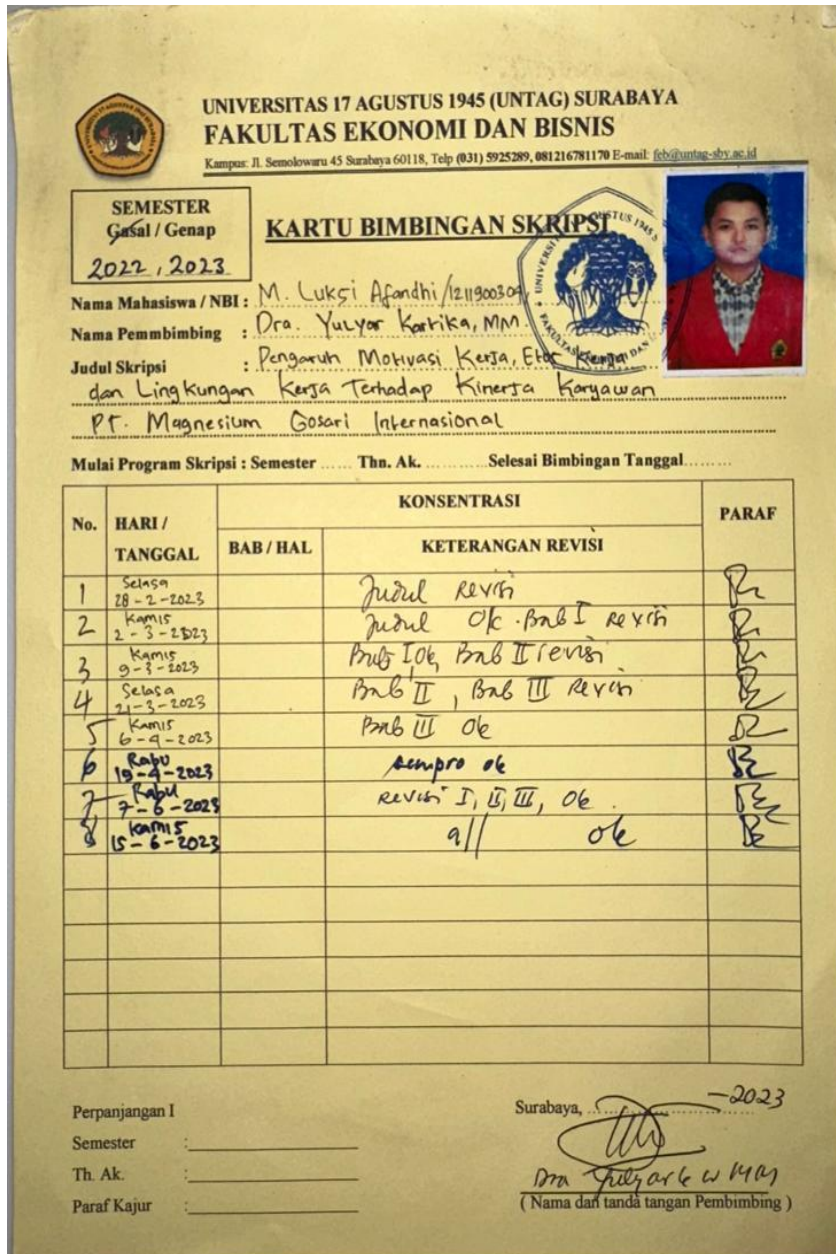 UNIVERSITAS 17 AGUSTUS 1945 (UNTAG) SURABAYA
FAKULTAS EKONOMI DAN BISNIS
Kampus: Jl. Semolowaru 45 Surabaya 60118, Telp (031) 5925289, 081216781170 E-mail: feb@untag-sby.ac.id
SEMESTER
Gasal / Genap
2022, 2023
KARTU BIMBINGAN SKRIPSI
Nama Mahasiswa / NBI : M. Luksi Afandhi /1211900304
Nama Pemmbimbing : Dra. Yulyar Kartika, MM.
Judul Skripsi : Pengaruh Motivasi Kerja, Etos Kerja
dan Lingkungan Kerja Terhadap Kinerja Karyawan
PT. Magnesium Gosari Internasional
Mulai Program Skripsi : Semester ...... Thn. Ak. ............ Selesai Bimbingan Tanggal.........
No. HARI / TANGGAL KONSENTRASI PARAF
BAB / HAL KETERANGAN REVISI
1 Selasa 28-2-2023 Judul Revisi
2 Kamis 2-3-2023 Judul Ok. Bab I Revisi
3 Kamis 9-3-2023 Bab I Ok, Bab II revisi
4 Selasa 21-3-2023 Bab II, Bab III Revisi
5 Kamis 6-4-2023 Bab III Ok
6 Rabu 19-4-2023 sempro ok
7 Rabu 7-6-2023 Revisi I, II, III, Ok.
8 Kamis 15-6-2023 all ok
Perpanjangan I
Semester :
Th. Ak. :
Paraf Kajur :
Surabaya, -2023
Dra
( Nama dan tanda tangan Pembimbing )